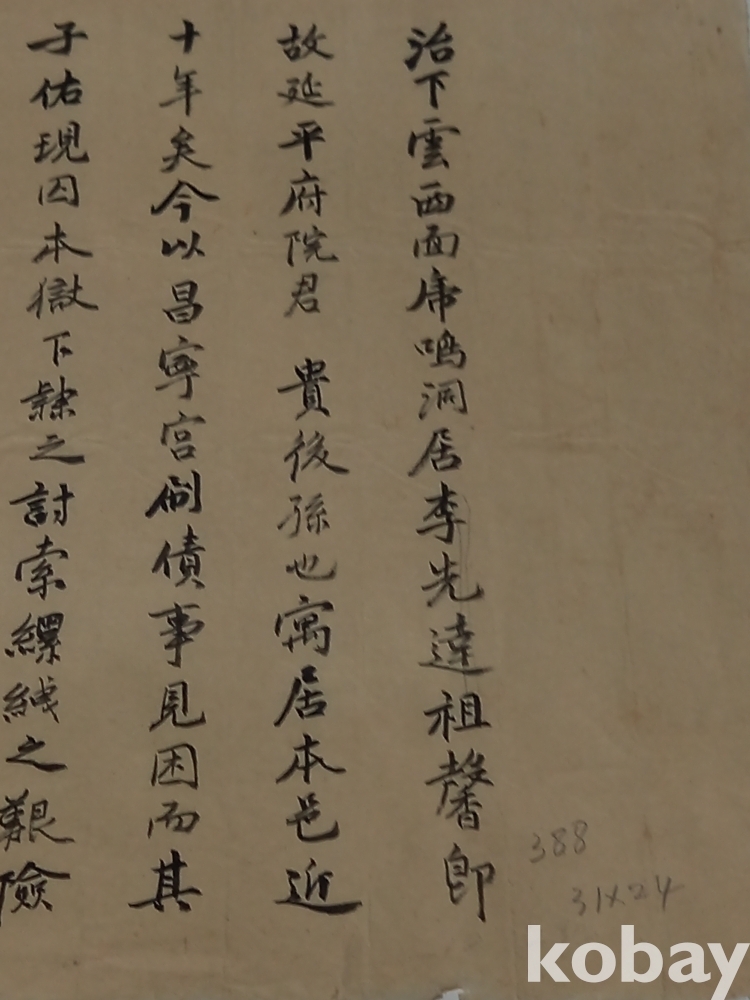 治下雲西面席鳴洞居李先達祖馨卽
故延平府院君 貴後孫也寓居本邑近
十年矣今以昌寧宮倒債事見困而其
子佑現囚本獄下隷之討索縲絏之艱險
388
31X24
kobay